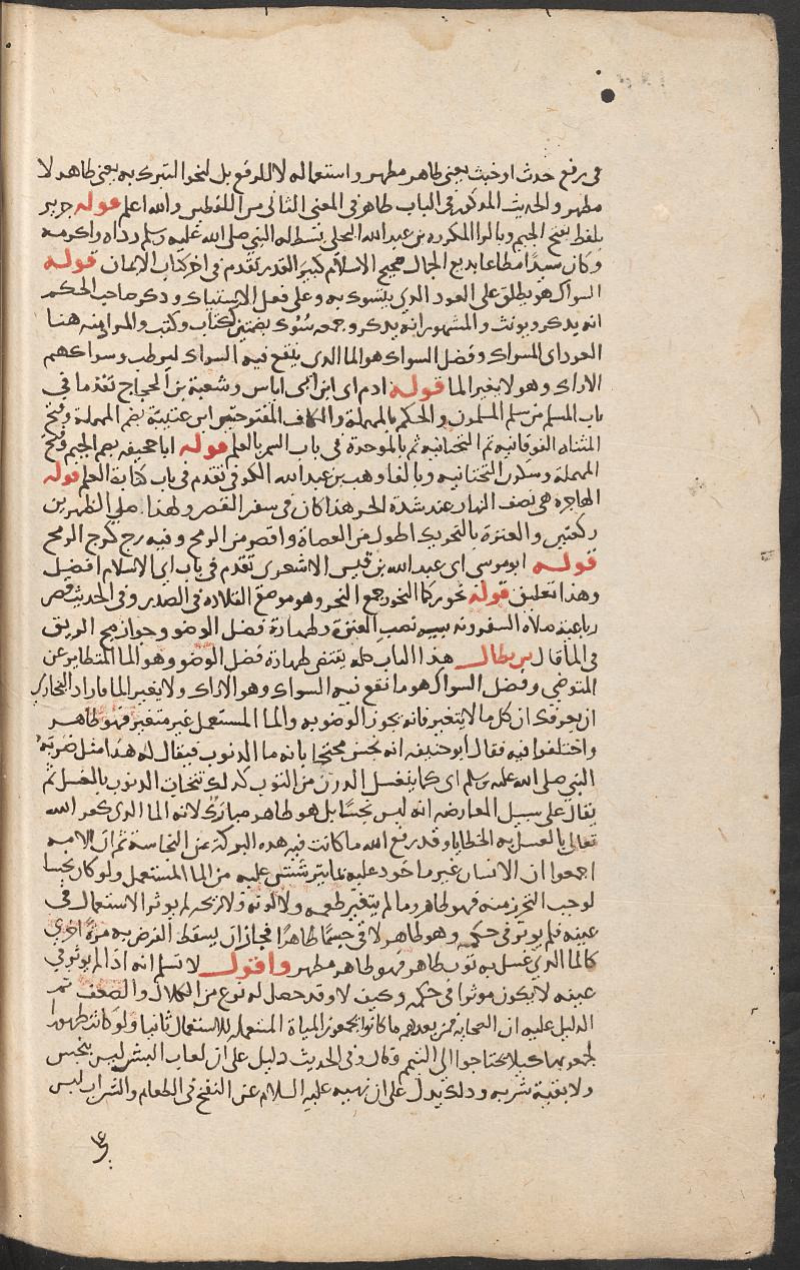 فى رفع حدث او خبث يعنى طاهر مطهر واستعماله لا للرفع بل لنحو التبرك به يعنى طاهر لا
مطهر والحديث المذكور فى الباب ظاهر فى المعنى الثانى من اللفظين والله اعلم قوله جرير
بلفظ بفتح الجيم وبالرا المكررة بن عبد الله البجلى بسط له النبى صلى الله عليه وسلم رداه واكرمه
وكان سيدا مطاعا بديع الجمال صحيح الاسلام كبير القدر تقدم فى اخر كتاب الايمان قوله
السواك هو يطلق على العود الذي يتسوك به وعلى فعل الاستياك وذكر صاحب المحكم
انه يذكر ويونث والمشهور انه يذكر وجمعه سُوُك بضمتين ككتاب وكتب والمراد منه هنا
العود اى المسواك وفضل السواك هو الما الذى ينتقع فيه السواك ليرطب وسواكهم
الاراك وهو لا يغير الما قوله ادم اى ابن ابى اياس وشعبة بن الحجاج تقدما فى
باب المسلم من سلم المسلمون والحكم بالمهملة والكاف المفتوحتين ابن عتيبة بضم المهملة وفتح
المثناه الفوقانيه ثم التحتانيه ثم بالموحدة فى باب السمر بالعلم قوله ابا جحيفه بضم الجيم وفتح
المهملة وسكون التحتانيه وبالفا وهب بن عبد الله الكوفى تقدم فى باب كتابة العلم قوله
الهاجره هى نصف النهار عند شدة الحر هذا كان فى سفر القصر ولهذا صلى الظهر بن
ركعتين والعنزة بالتحريك اطول من العصاة واقصر من الرمح وفيه زج كزج الرمح
قوله ابو موسى اى عبد الله بن قيس الاشعرى تقدم فى باب اى الاسلام افضل
وهذا تعليق قوله نحوركما النحور جمع النحر وهو موضع القلاده فى الصدر وفى الحديث قصر
رباعية صلاه السفر ونه نصب العنزة وطهارة فضل الوضو وجواز مج الريق
فى الما قال بن بطال هذا الباب كله يقتضى طهارة فضل الوضو وهو الما المتطاير عن
المتوضى وفضل السواك هو ما انقع فيه السواك وهو الاراك ولا يغير الما فاراد البخارى
ان يعرفك ان كل ما لا يتغير فانه يجوز الوضو به والما المستعمل غير متغير فهو طاهر
واختلفوا فيه فقال ابو حنيفه انه نجس محتجا بانه ما الذنوب فيقال له هذا مثل ضربه
النبى صلى الله عليه وسلم اى كما ينغسل الدرن من الثوب كذلك تتحات الذنوب بالغسل ثم
يقال على سبيل المعارضه انه ليس نجسا بل هو طاهر مبارك لانه الما الذى كفر الله
تعالى بالغسل به الخطايا وقد رفع الله ما كانت فيه هذه البركة عن النجاسة ثم ان الامه
اجمعوا ان الانسان غير ماخوذ عليه بما يترشش عليه من الما المستعمل ولو كان نجسا
لوجب التحرز منه فهو طاهر وما لم يتغير طعمه ولا لونه ولا ريحه لم يوثر الاستعمال فى
عينه فلم يوثر فى حكمه وهو طاهر لاقى جسما طاهرا فجاز ان يسقط الفرض به مرة اخرى
كالما الذى غسل به ثوب طاهر فهو طاهر مطهر واقول لا نسلم انه اذا لم يوثر فى
عينه لا يكون موثرا فى حكمه وكيف لا وقد حصل له نوع من الكلال والضعف ثم
الدليل عليه ان الصحابة فمن بعدهم ما كانوا يجمعون المياة المستعملة للاستعمال ثانيا ولو كانت طهورا
لجمعوها كيلا يحتاجوا الى التيمم قال وفى الحديث دليل على ان لعاب البشر ليس بنجس
ولا بقية شربه وذلك يدل على ان نهيه عليه السلام عن النفخ فى الطعام والشراب ليس